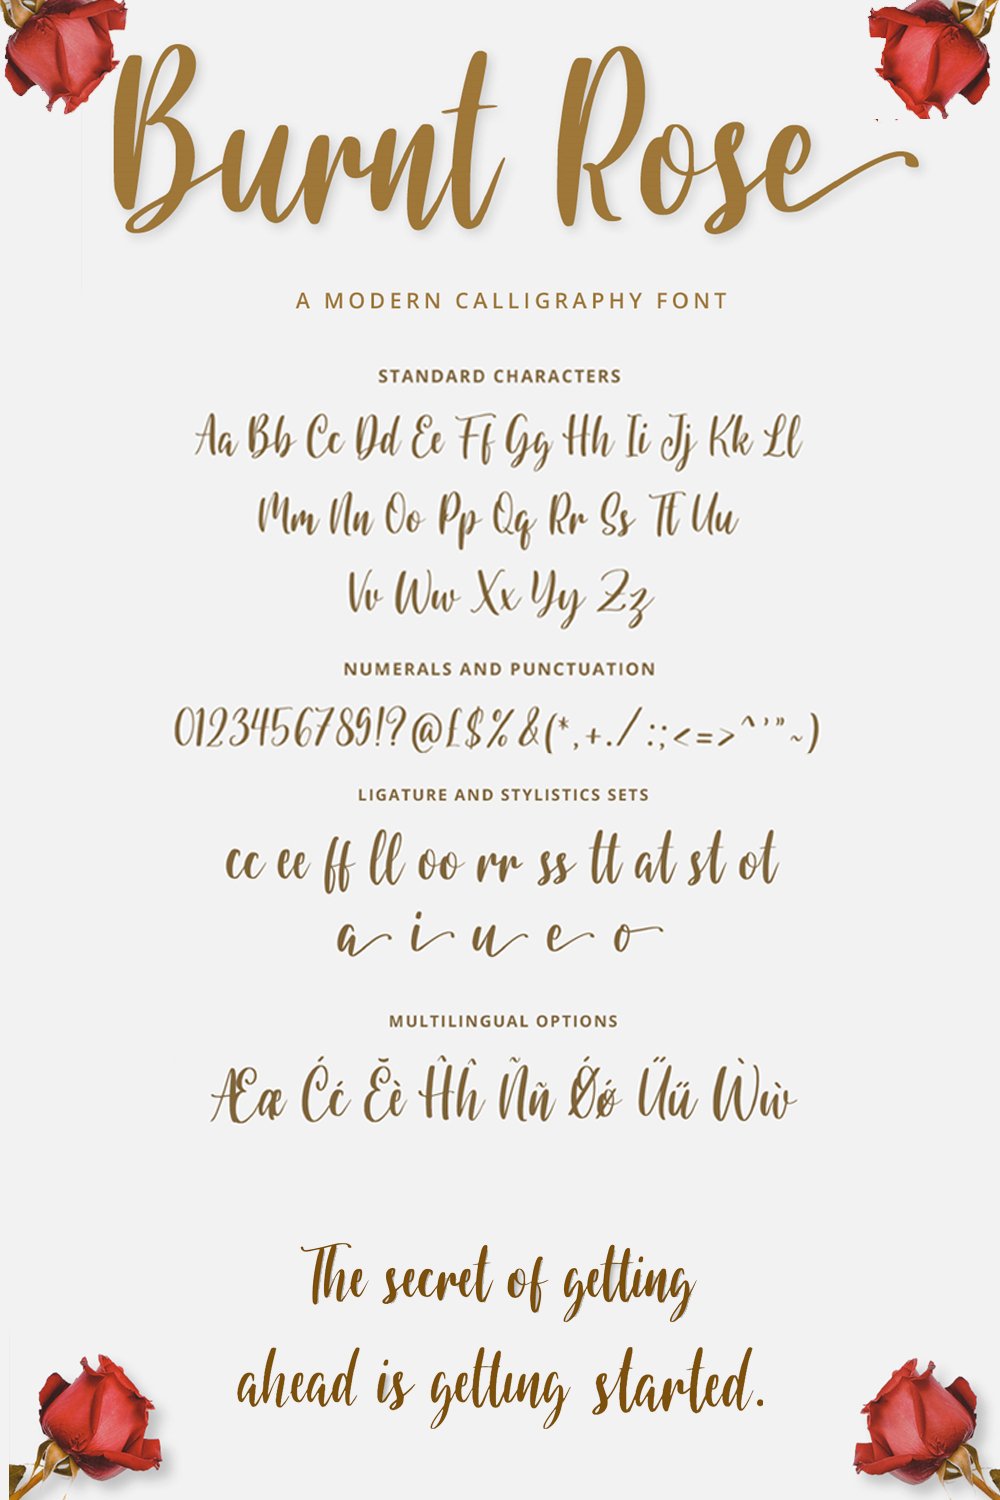 Burnt Rose
A MODERN CALLIGRAPHY FONT
STANDARD CHARACTERS
Aa Bb Cc Dd Ee Ff Gg Hh Ii Jj Kk Ll
Mm Nn Oo Pp Qq Rr Ss Tt Uu
Vv Ww Xx Yy Zz
NUMERALS AND PUNCTUATION
0123456789!?@£$%&(*,+./:;<=>^'"~)
LIGATURE AND STYLISTICS SETS
cc ee ff ll oo rr ss tt at st ot
a i u e o
MULTILINGUAL OPTIONS
Ææ Ćć Ĕè Ĥĥ Ññ Ǿǿ Űű Ẁẁ
The secret of getting
ahead is getting started.